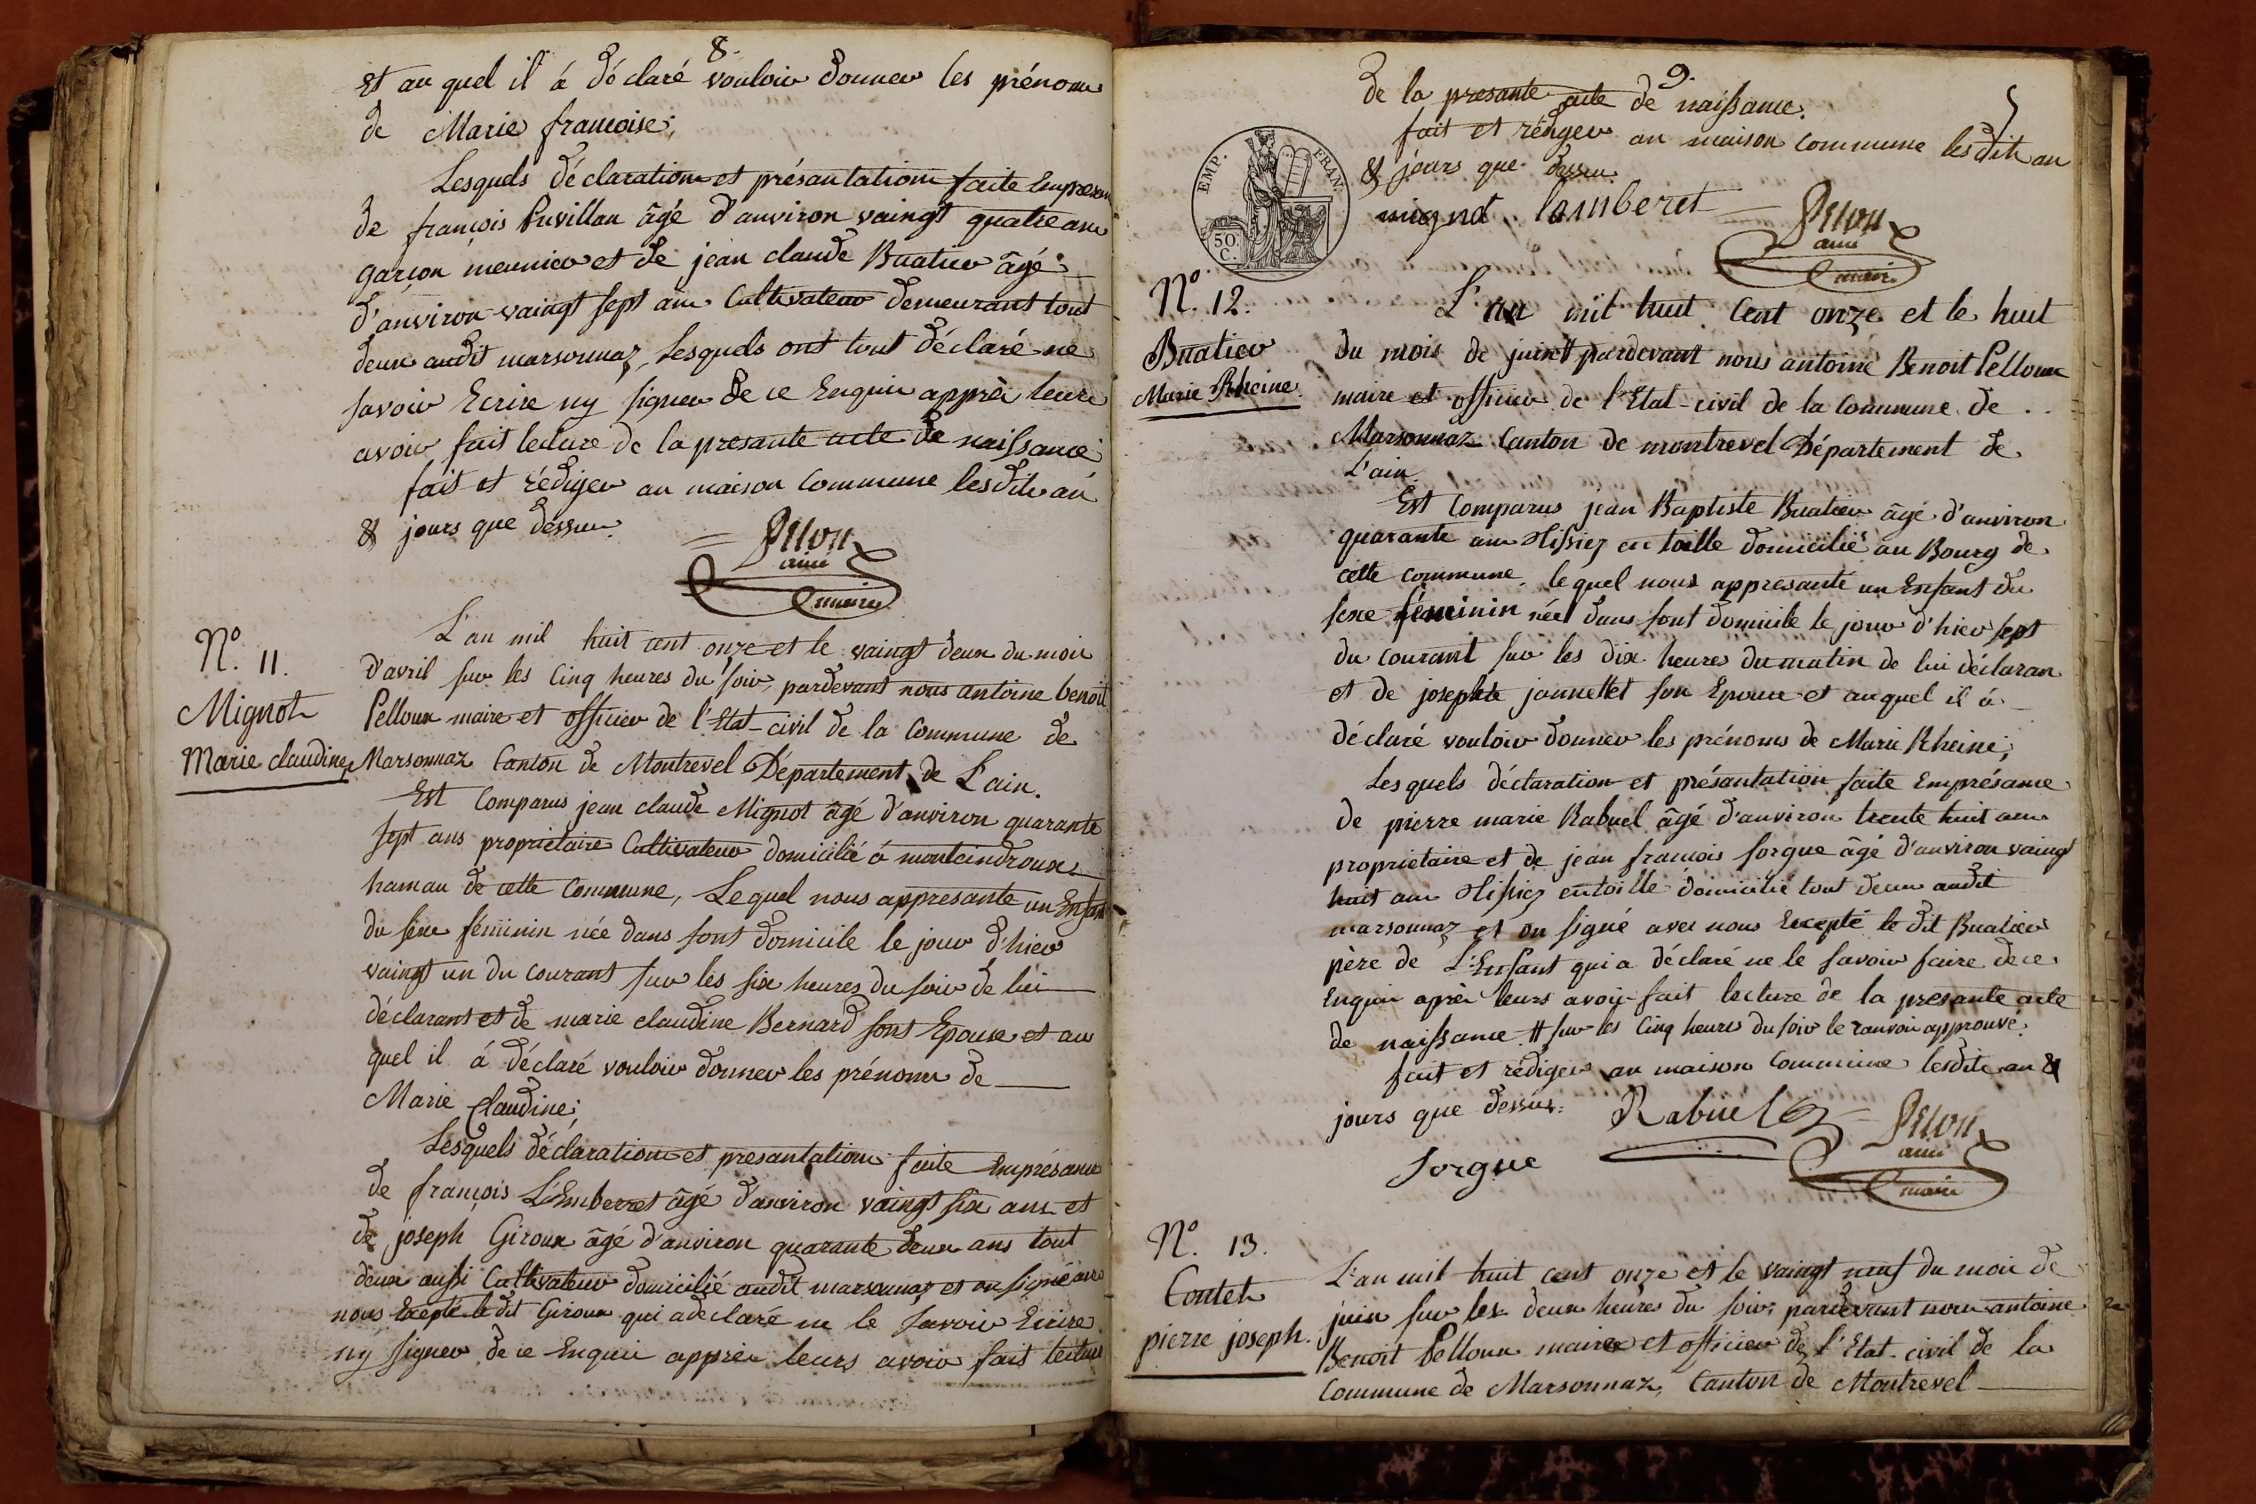 8.
Et au quel il á déclaré vouloir donner les prénoms
de Marie francoise;
Lesquels déclaration et présantation faite Empresence
de françois Puvillan âgé d'anviron vaingt quatre ans
garçon meunier et de jean claude Buatier âgé
d'anviron vaingt sept ans Cultivateur demeurants tout
deux audit marsonnaz, Lesquels ont tout déclaré ne
savoir Ecrire ny signer de ce Enquis apprès leurs
avoir fait lecture de la presante acte de naissance
fait et rédiger an maison Commune lesdits an
& jours que dessus.
maire
N.º 11.
Mignot
Marie claudine
L'an mil huit cent onze et le vaingt deux du mois
d'avril sur les Cinq heures du soir, pardevant nous antoine benoit
Pelloux maire et officier de l'Etat-civil de la Commune de
Marsonnaz Canton de Montrevel Département de L'ain.
Est Comparus jean claude Mignot âgé d'anviron quarante
sept ans propriétaire Cultivateur domicilié á montcindroux
hamau de cette Commune, Le quel nous appresante un Enfant
du sexe féminin née dans sont domicile le jour d'hier
vaingt un du courant sur les six heures du soir de lui
déclarant et de marie claudine Bernard sont Epouse et au
quel il á déclaré vouloir donner les prénoms de
Marie Claudine;
Lesquels déclaration et presantation faite Emprésance
de françois L'Emberret âgé d'anviron vaingt six ans et
de joseph Giroux âgé d'anviron quarante deux ans tout
deux aussi Cultivateur domicilié audit marsonnaz et on signé avec
nous Excepté le dit Giroux qui a déclaré ne le savoir Ecrire
ny signer de ce Enquis apprès leurs avoir fait lecture
9.
5
de la presante acte de naissance.
fait et rédiger an maison Commune lesdits an
& jours que dessus.
EMP. FRAN.
50 C.
mignot lamberet
maire
N.º 12.
Buatier
Marie Rheine.
L'an mil huit Cent onze et le huit
du mois de juin # pardevant nous antoine Benoit Pelloux
maire et officier de l'Etat-civil de la Commune de
Marsonnaz Canton de montrevel Département de
L'ain.
Est Comparus jean Baptiste Buatier âgé d'anviron
quarante ans tissiez en toille domicilié au Bourg de
cette commune. le quel nous appresante un Enfant du
sexe féminin née dans sont domicile le jour d'hier sept
du courant sur les dix heures du matin de lui déclaran
et de josephte jannettet son Epouse et auquel il á
déclaré vouloir donner les prénoms de Marie Rheine;
Lesquels déclaration et présantation faite Emprésance
de pierre marie Rabuel âgé d'anviron trente huit ans
proprietaire et de jean françois sorgue âgé d'anviron vaingt
huit ans tissiez entoille domicilié tout deux audit
marsonnaz et on signé avec nous Excepté le dit Buatier
père de L'Enfant qui a déclaré ne le savoir faire de ce
Enquis après leurs avoir fait lecture de la presante acte
de naissance # sur les Cinq heures du soir le ranvoi approuvé.
fait et rédiger an maison Commune lesdits an &
jours que dessus.
Rabuel
maire
Sorgue
N.º 13.
Contet
pierre joseph.
L'an mil huit cent onze et le vaingt neuf du mois de
juin sur les deux heures du soir, pardevant nous antoine
Benoit Pelloux maire et officier de l'Etat-civil de la
Commune de Marsonnaz, Canton de Montrevel